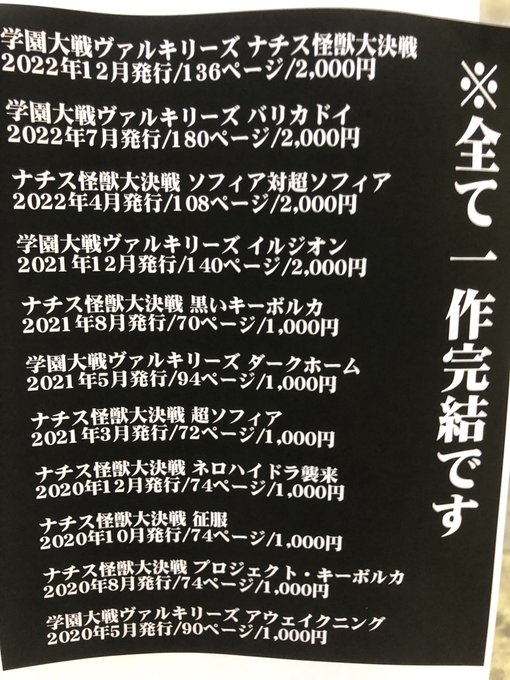 ※全て一作完結です
学園大戦ヴァルキリーズ ナチス怪獣大決戦
2022年12月発行/136ページ/2,000円
学園大戦ヴァルキリーズ バリカドイ
2022年7月発行/180ページ/2,000円
ナチス怪獣大決戦 ソフィア対超ソフィア
2022年4月発行/108ページ/2,000円
学園大戦ヴァルキリーズ イルジオン
2021年12月発行/140ページ/2,000円
ナチス怪獣大決戦 黒いキーボルカ
2021年8月発行/70ページ/1,000円
学園大戦ヴァルキリーズ ダークホーム
2021年5月発行/94ページ/1,000円
ナチス怪獣大決戦 超ソフィア
2021年3月発行/72ページ/1,000円
ナチス怪獣大決戦 ネロハイドラ襲来
2020年12月発行/74ページ/1,000円
ナチス怪獣大決戦 征服
2020年10月発行/74ページ/1,000円
ナチス怪獣大決戦 プロジェクト・キーボルカ
2020年8月発行/74ページ/1,000円
学園大戦ヴァルキリーズ アウェイクニング
2020年5月発行/90ページ/1,000円